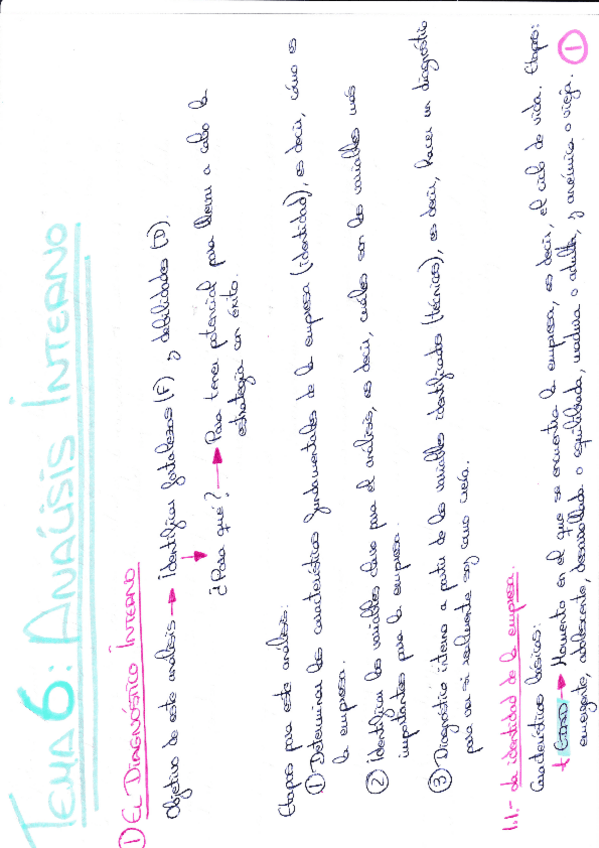 TEMA 6: ANÁLISIS INTERNO
① EL DIAGNÓSTICO INTERNO
Objetivo de este análisis → Identificar fortalezas (F) y debilidades (D).
¿Para qué? → Para tener potencial para llevar a cabo la
estrategia con éxito.
Etapas para este análisis:
① Determinar las características fundamentales de la empresa (identidad), es decir, cómo es
la empresa.
② Identificar las variables clave para el análisis, es decir, cuáles son las variables más
importantes para la empresa.
③ Diagnóstico interno a partir de las variables identificadas (técnicas), es decir, hacer un diagnóstico
para ver si realmente son como creía.
1.1.- La identidad de la empresa.
Características básicas:
+ EDAD → Momento en el que se encuentra la empresa, es decir, el ciclo de vida. Etapas:
emergente, adolescente, desarrollada o equilibrada, madura o adulta, y anémica o vieja.
①